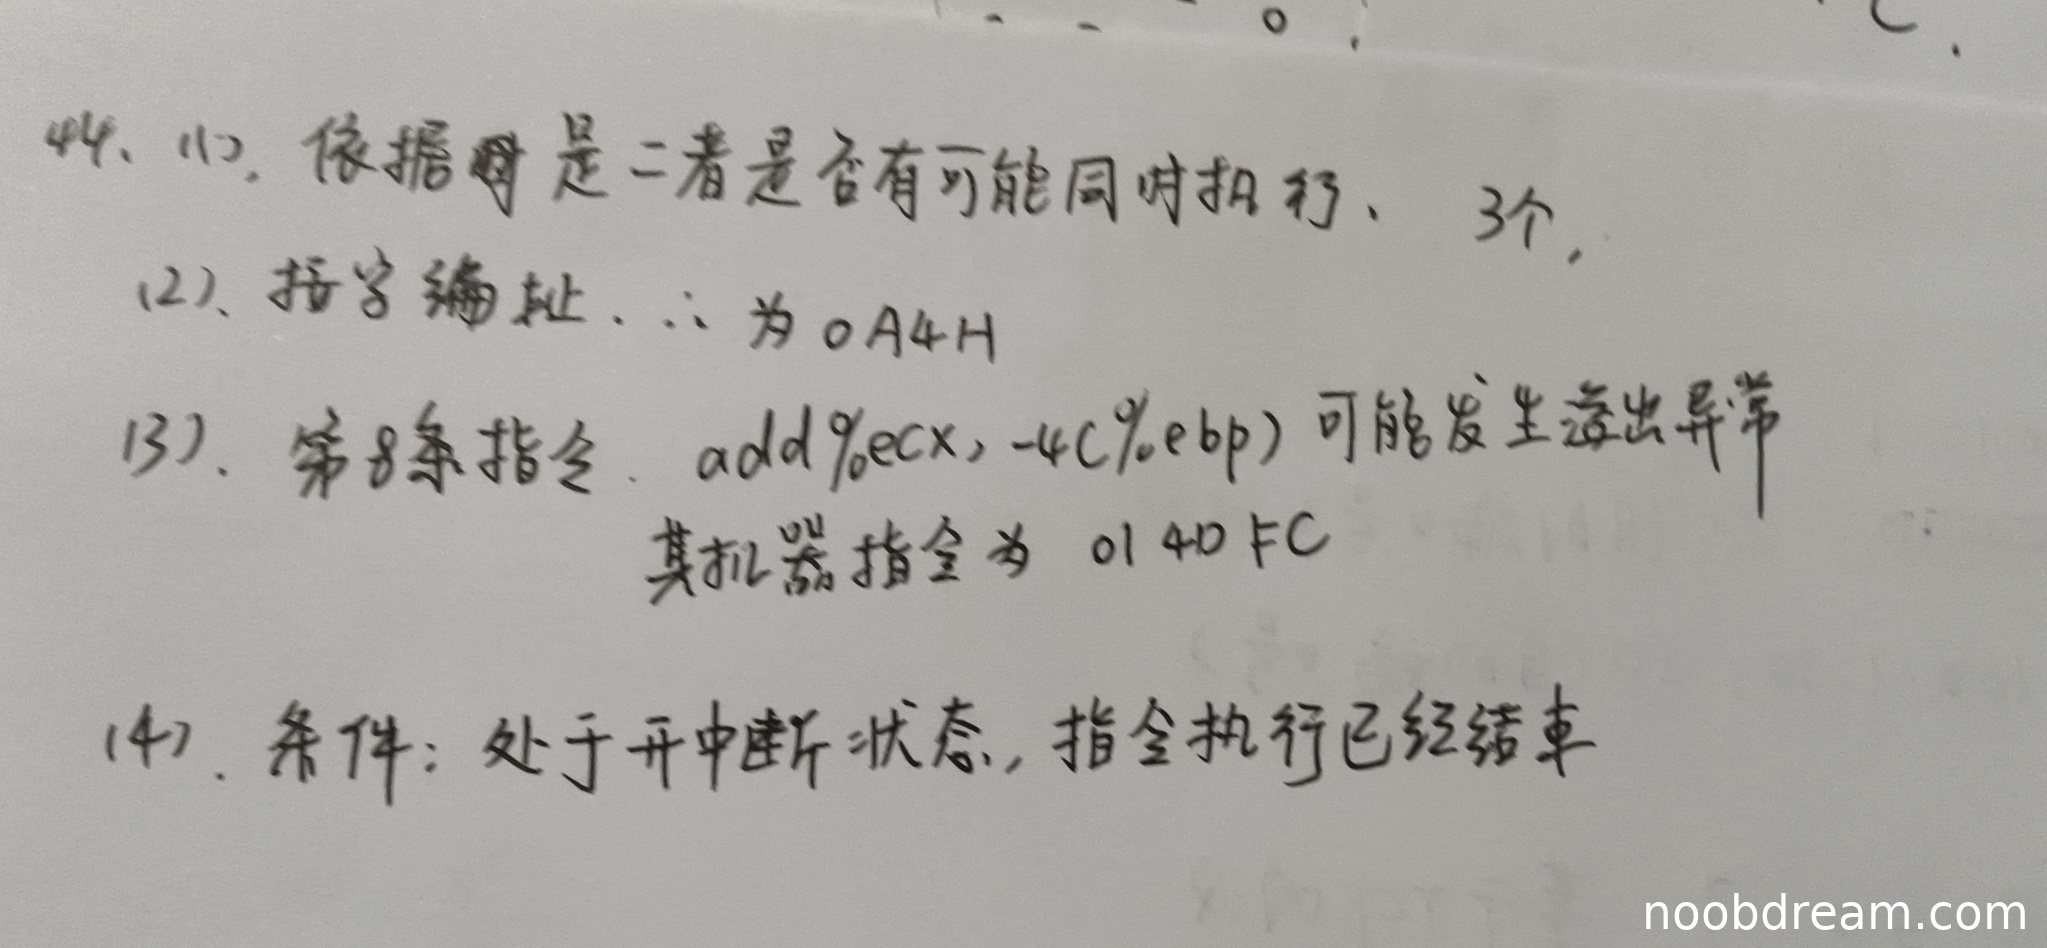 44、(1)、依据是二者是否有可能同时执行、 3个,
(2)、按字编址. ∴ 为 0A4H
(3)、第8条指令. add %ecx, -4(%ebp) 可能发生溢出异常
其机器指令为 01 4D FC
(4)、条件: 处于开中断状态, 指令执行已经结束
noobdream.com